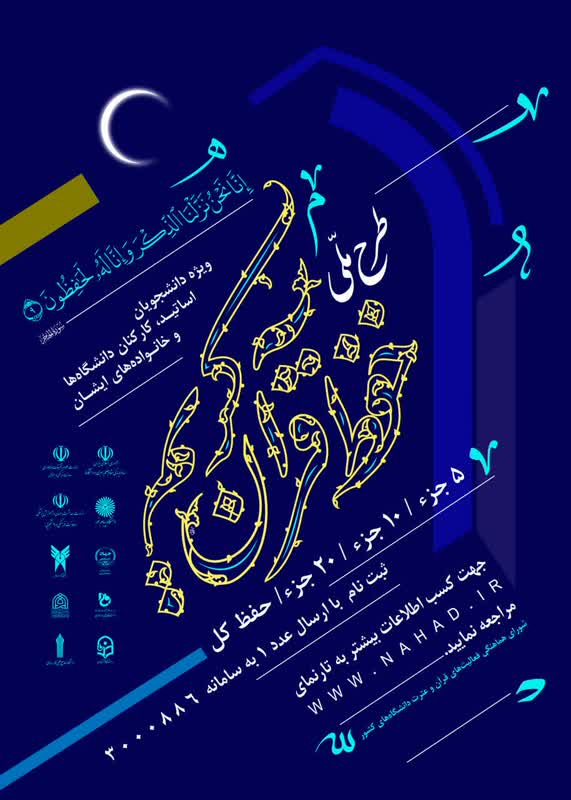 إِنَّا نَحْنُ نَزَّلْنَا الذِّكْرَ وَإِنَّا لَهُ لَحَافِظُونَ
طرح ملّی
حفظ قرآن کریم
ویژه دانشجویان
اساتید، کارکنان دانشگاه‌ها
و خانواده‌های ایشان
۵ جزء / ۱۰ جزء / ۲۰ جزء / حفظ کل
ثبت نام با ارسال عدد ۱ به سامانه ۳۰۰۰۰۸۸۶
جهت کسب اطلاعات بیشتر به تارنمای
WWW.NAHAD.IR
مراجعه نمایید.
شورای هماهنگی فعالیت‌های قرآن و عترت دانشگاه‌های کشور